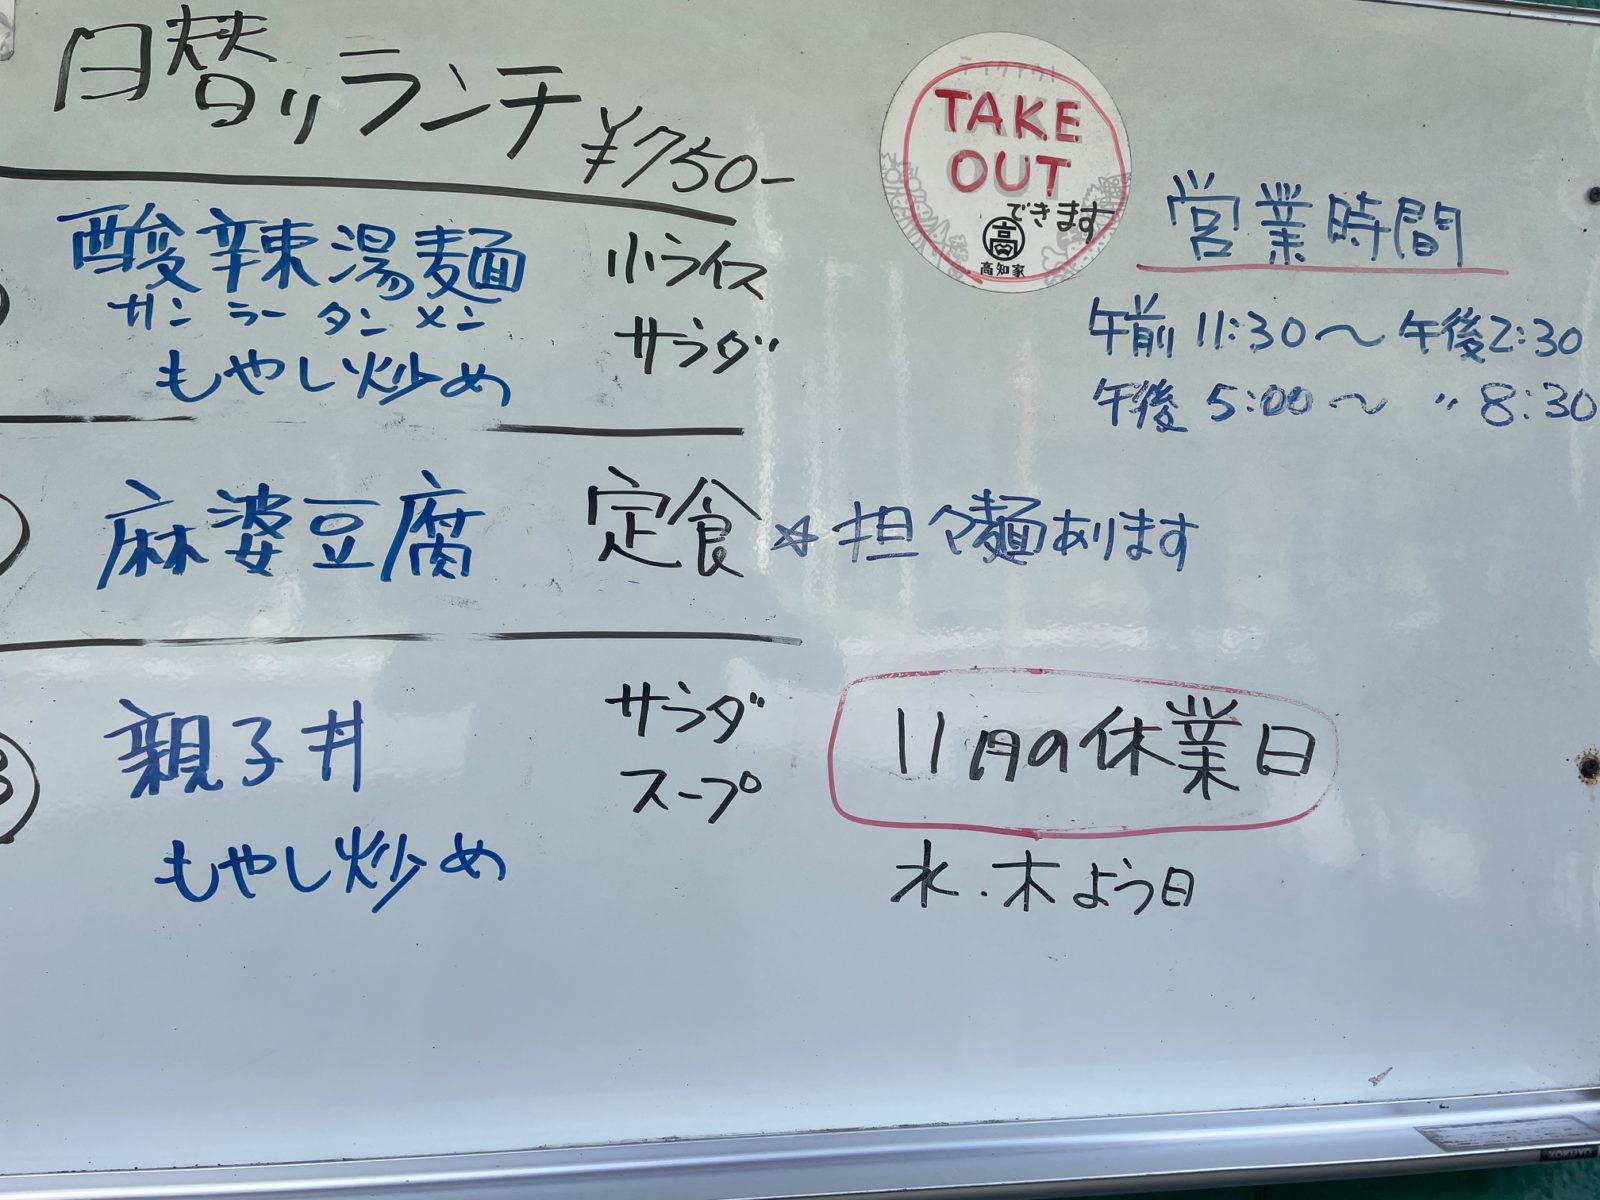 日替りランチ ¥750-
酸辣湯麺 小ライス
サンラータンメン
サラダ
もやし炒め
麻婆豆腐 定食
☆担々麺あります
③
親子丼 サラダ
スープ
もやし炒め
TAKE
OUT
できます
高
高知家
営業時間
午前11:30〜午後2:30
午後5:00〜〃8:30
11月の休業日
水・木よう日
KOKUYO